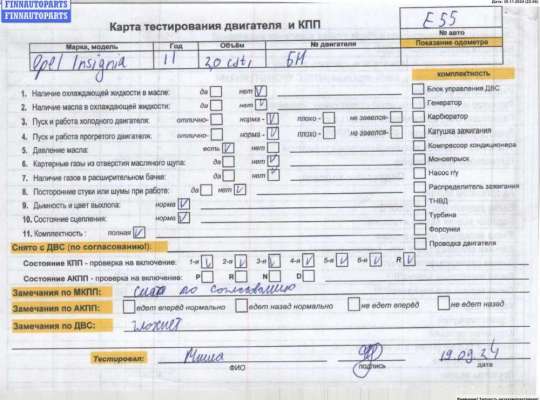 FINNAUTOPARTS
FINNAUTOPARTS
Карта тестирования двигателя и КПП
E55
№ авто
Марка, модель Год Объём № двигателя Показание одометра
Opel Insignia 11 2,0 cdti БН
комплектность
1. Наличие охлаждающей жидкости в масле: да нет V
2. Наличие масла в охлаждающей жидкости: да нет V
3. Пуск и работа холодного двигателя: отлично- норма - V плохо - не завелся-
4. Пуск и работа прогретого двигателя: отлично- норма - V плохо - не завелся-
5. Давление масла: есть V нет
6. Картерные газы из отверстия масляного щупа: да нет V
7. Наличие газов в расширительном бачке: да нет V
8. Посторонние стуки или шумы при работе: да нет V
9. Дымность и цвет выхлопа: норма V
10. Состояние сцепления: норма V
11. Комплектность : полная V
Блок управления ДВС
Генератор
Карбюратор
Катушка зажигания
Компрессор кондиционера
Моновпрыск
Насос г/у
Распределитель зажигания
ТНВД
Турбина
Форсунки
Проводка двигателя
Снято с ДВС (по согласованию!):
Состояние КПП - проверка на включение: 1-я V 2-я V 3-я V 4-я V 5-я V 6-я V R V
Состояние АКПП - проверка на включение: P R N D
Замечания по МКПП: снята по согласованию
Замечания по АКПП: едет вперёд нормально едет назад нормально не едет вперёд не едет назад
Замечания по ДВС: глохнет
Тестировал: Миша 19.09.24
ФИО подпись дата